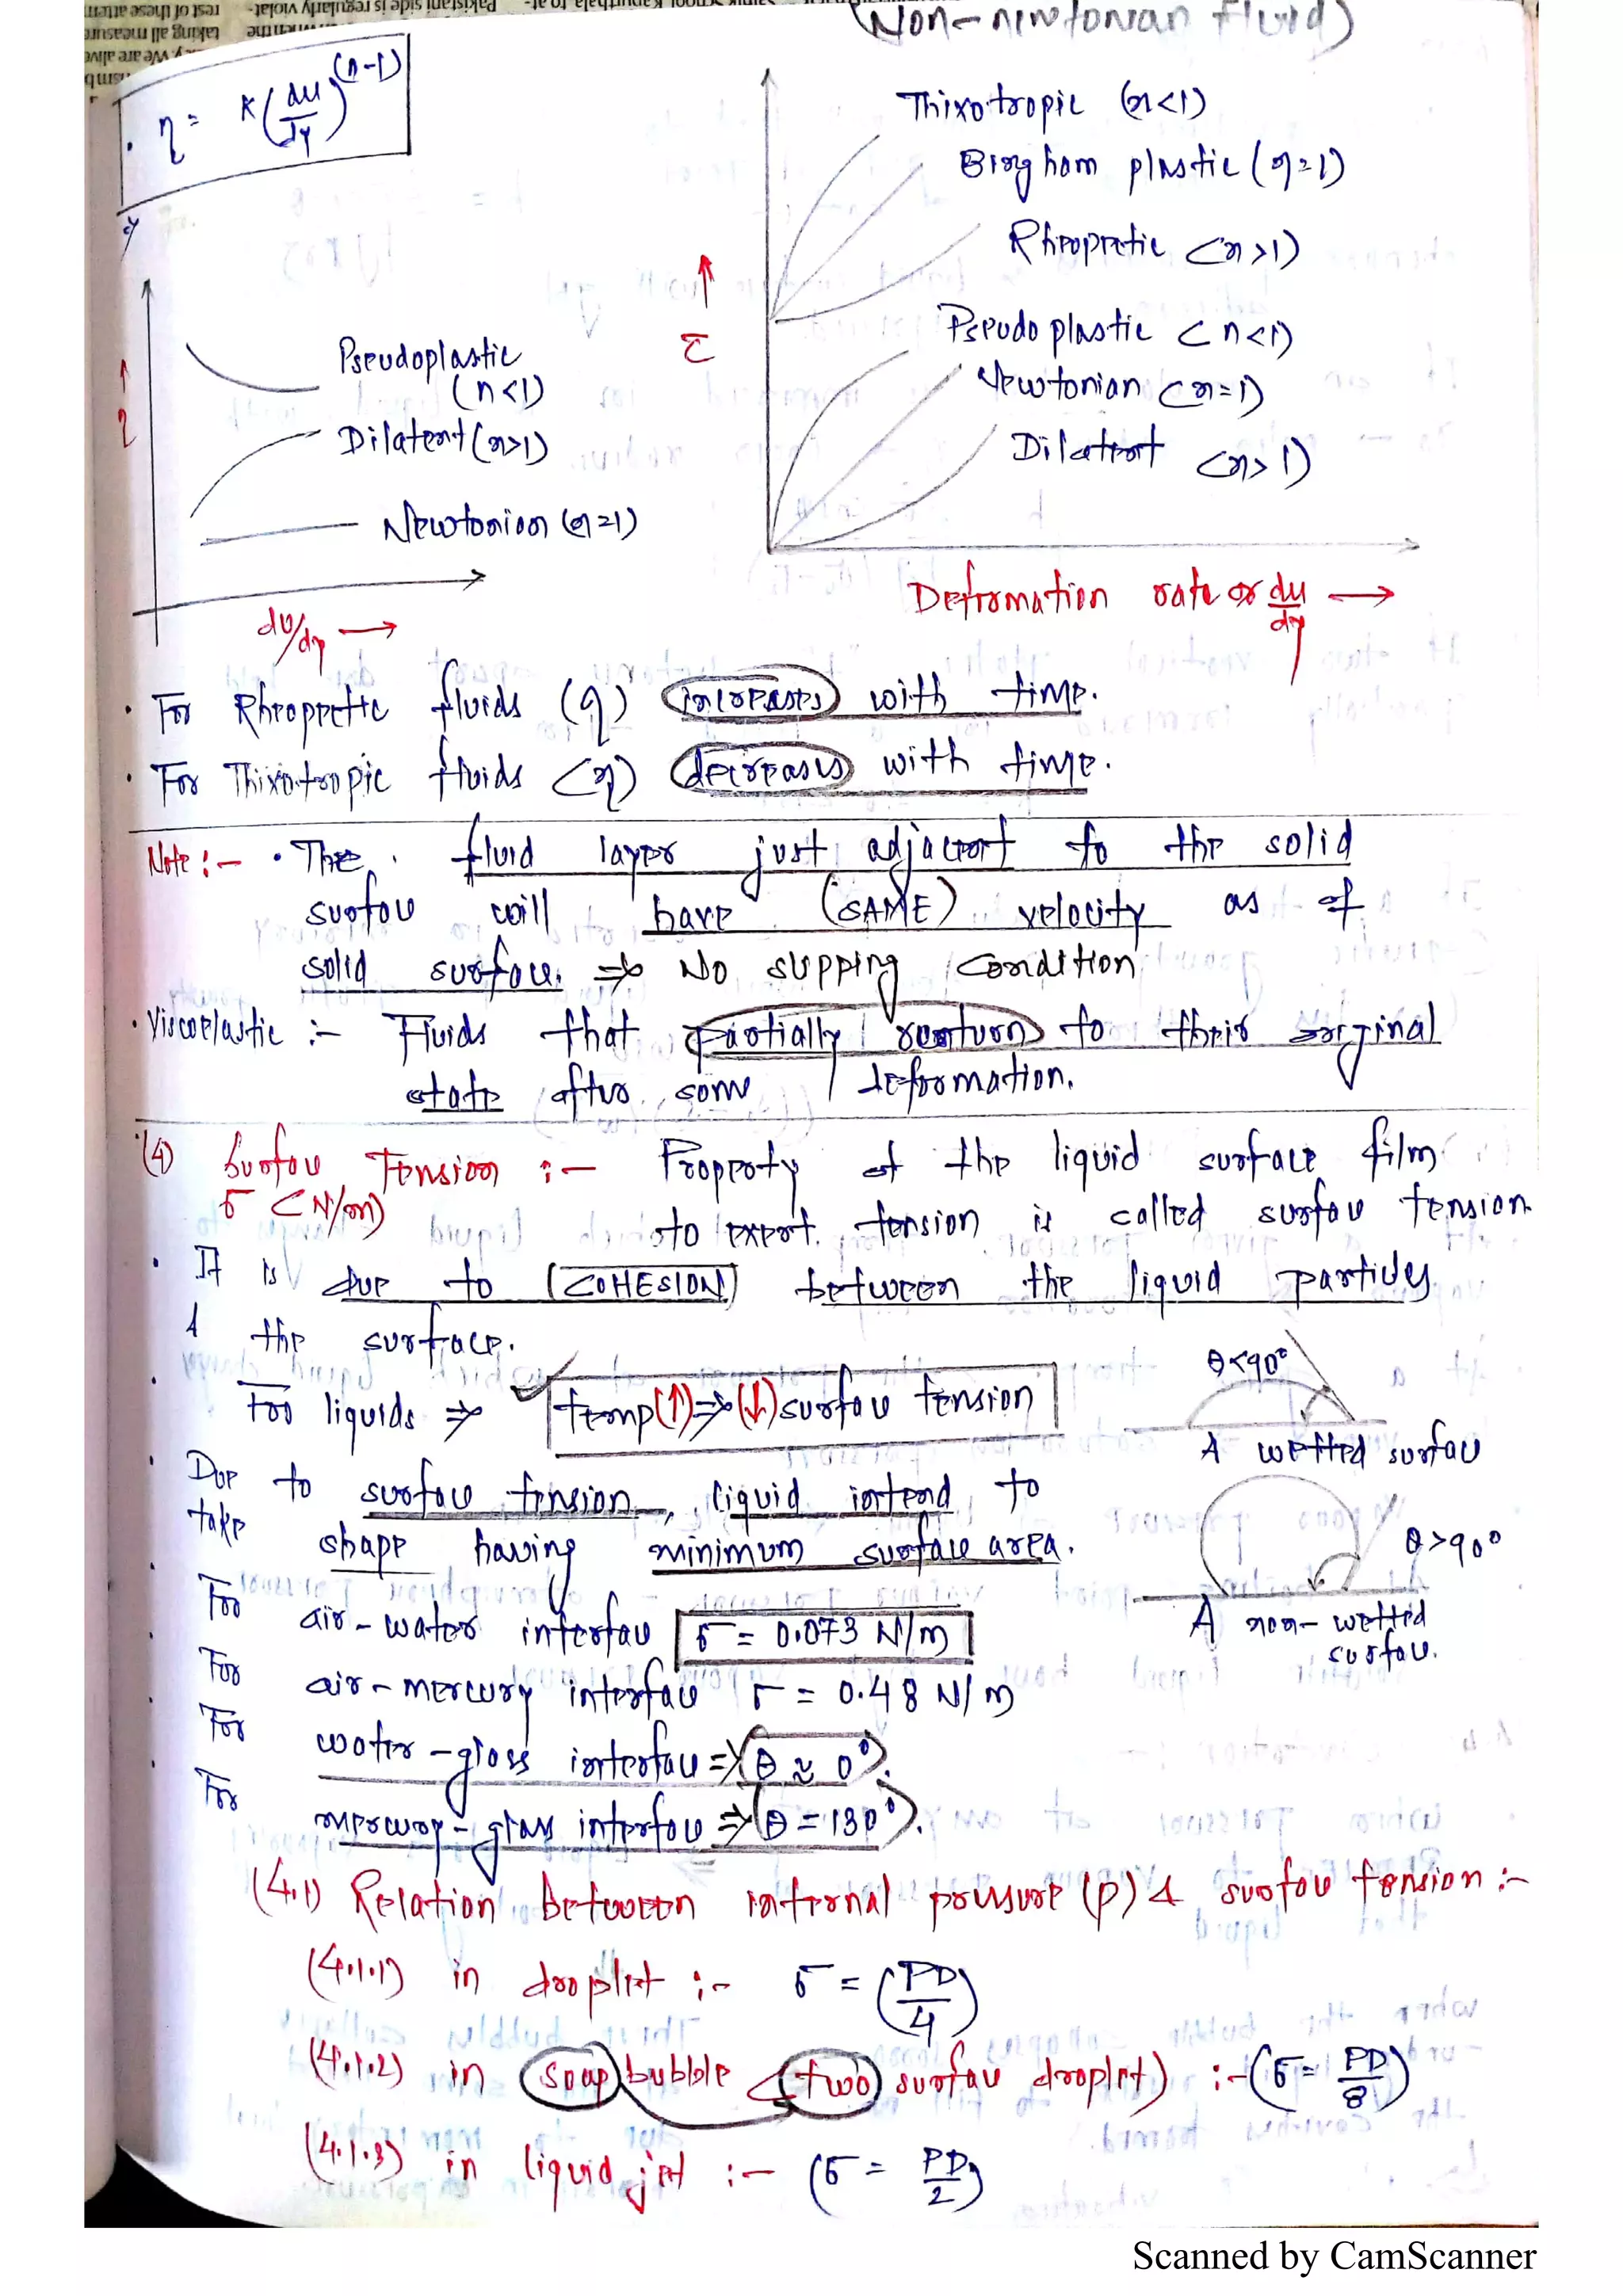 (Non-newtonian fluid)
η = K(du/dy)^(n-1)
Thixotropic (n<1)
Bingham plastic (n=1)
Rheopectic (n>1)
Pseudoplastic (n<1)
Newtonian (n=1)
Dilatent (n>1)
τ
Deformation rate or du/dy →
Pseudoplastic
(n<1)
Dilatent (n>1)
Newtonion (n=1)
η
du/dy →
• For Rheopectic fluids (η) increases with time.
• For Thixotropic fluids (η) decreases with time.
Note :- • The fluid layer just adjacent to the solid
surface will have (SAME) velocity as of
solid surface. ⇒ No slipping condition
• Viscoelastic :- Fluids that partially return to their orginal
state after some deformation.
(4) Surface Tension :- Property of the liquid surface film
σ (N/m) to expert tension is called surface tension
• It is due to (COHESION) between the liquid particles
& the surface.
• For liquids ⇒ temp(↑)⇒(↓)surface tension
θ<90°
A wetted surface
• Due to surface tension, liquid intend to
take shape having minimum surface area.
θ>90°
A non-wetted
surface.
• For air-water interface σ = 0.073 N/m
• For air-mercury interface σ = 0.48 N/m
• For water-glass interface ⇒ (θ ≈ 0°).
• For mercury-glass interface ⇒ (θ = 130°).
(4.1) Relation between internal pressure (p) & surface tension :-
(4.1.1) in droplet :- σ = (PD/4)
(4.1.2) in soap bubble (two surface droplet) :- (σ = PD/8)
(4.1.3) in liquid jet :- (σ = PD/2)
Scanned by CamScanner